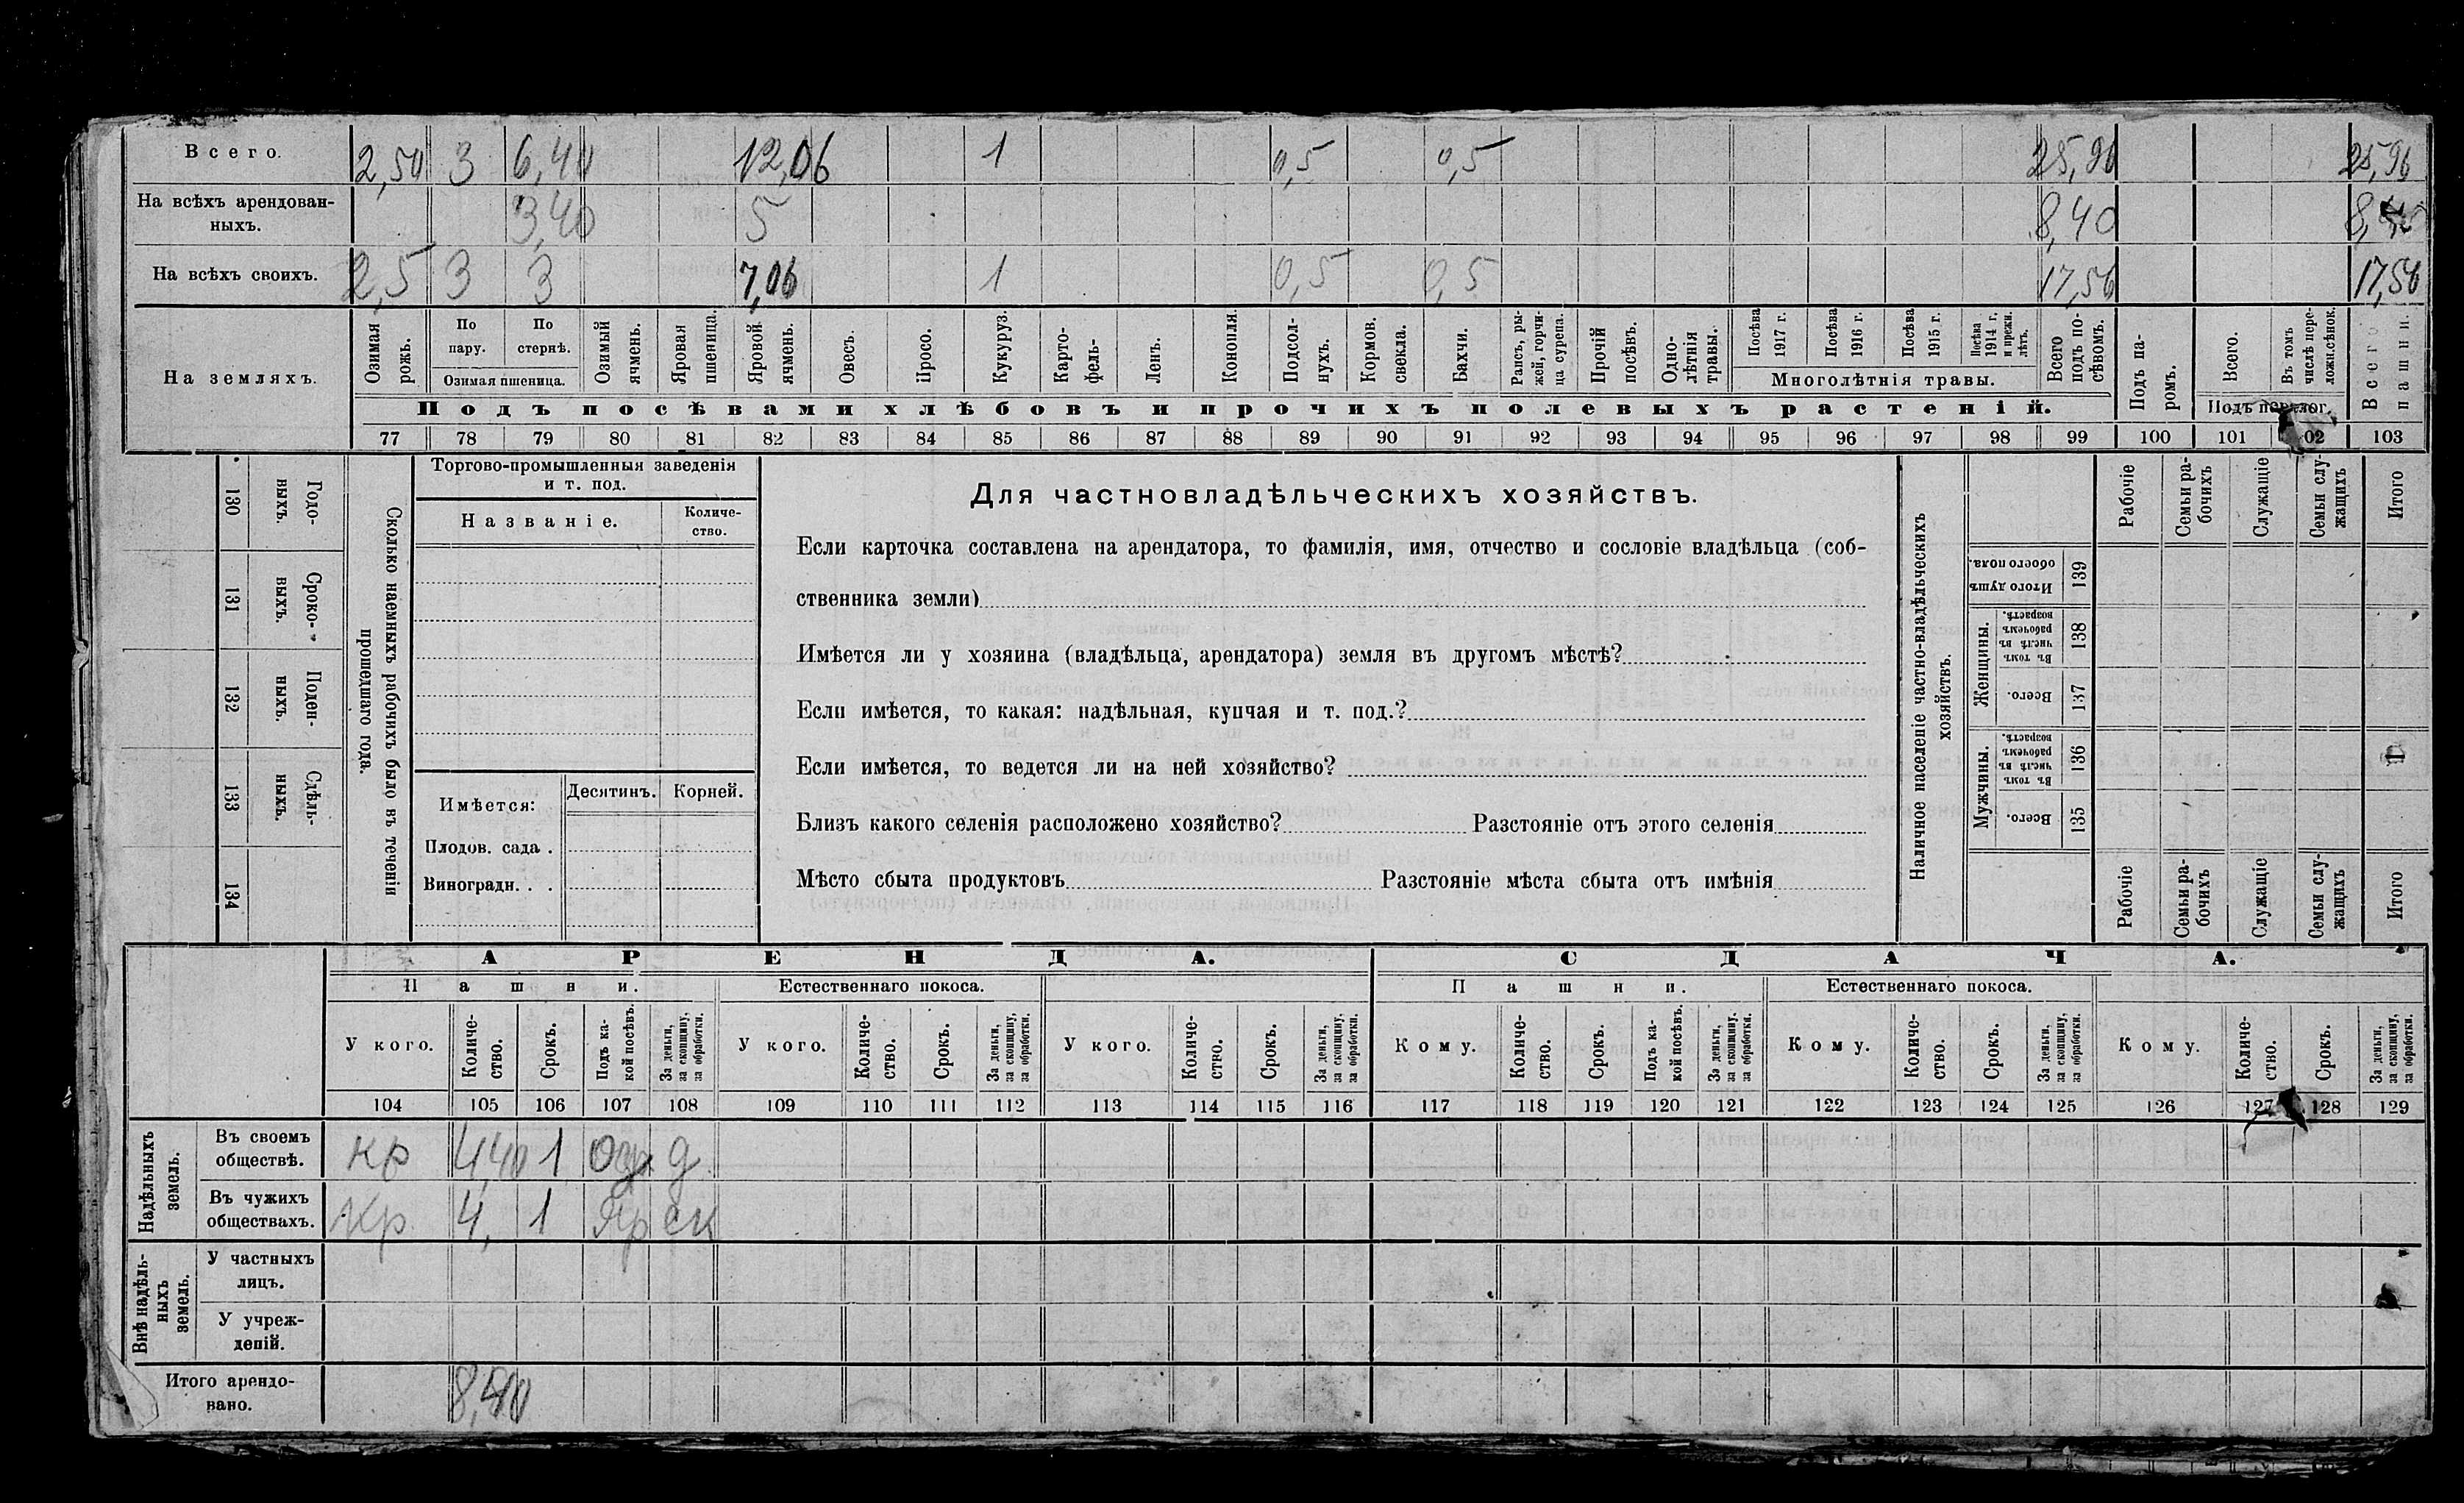 Всего. 2,50 3 6,40 12,06 1 0,5 0,5 25,96 25,96
На всѣхъ арендован-
ныхъ. 3,40 5 8,40 8,40
На всѣхъ своихъ. 2,5 3 3 7,06 1 0,5 0,5 17,56 17,56
На земляхъ.
Озимая рожь.
По пару.
По стернѣ.
Озимая пшеница.
Озимый ячмень.
Яровая пшеница.
Яровой ячмень.
Овесъ.
Просо.
Кукуруз.
Карто-
фель-
Ленъ.
Конопля.
Подсол-
нухъ.
Кормов. свекла.
Бахчи.
Рапсъ, ры-
жей, горчи-
ца сурепа.
Прочій посѣвъ.
Одно-
лѣтнія
травы.
Посѣва 1917 г.
Посѣва 1916 г.
Посѣва 1915 г.
Посѣва 1914 г. и прежн. лѣтъ.
Многолѣтнія травы.
Всего подъ по-
сѣвомъ.
Подъ па-
ромъ.
Всего.
Въ томъ числѣ пере-
ложн.сѣнок.
Подъ перелог.
Всего пашни.
Подъ посѣвами хлѣбовъ и прочихъ полевыхъ растеній.
77 78 79 80 81 82 83 84 85 86 87 88 89 90 91 92 93 94 95 96 97 98 99 100 101 102 103
130 Годо-
ныхъ.
131 Сроко-
ныхъ.
132 Поден-
ныхъ.
133 Сдѣль-
ныхъ.
134
Сколько наемныхъ рабочихъ было въ теченіи
прошедшаго года.
Торгово-промышленныя заведенія
и т. под.
Названіе.
Количе-
ство.
Имѣется: Десятинъ. Корней.
Плодов. сада .
Виноградн. . .
Для частновладѣльческихъ хозяйствъ.
Если карточка составлена на арендатора, то фамилія, имя, отчество и сословіе владѣльца (соб-
ственника земли)
Имѣется ли у хозяина (владѣльца, арендатора) земля въ другомъ мѣстѣ?
Если имѣется, то какая: надѣльная, купчая и т. под.?
Если имѣется, то ведется ли на ней хозяйство?
Близъ какого селенія расположено хозяйство? Разстояніе отъ этого селенія
Мѣсто сбыта продуктовъ Разстояніе мѣста сбыта отъ имѣнія
Наличное населеніе частно-владѣльческихъ
хозяйствъ.
Рабочіе
Семьи ра-
бочихъ
Служащіе
Семьи слу-
жащихъ
Итого
Итого душъ обоего пола. 139
Женщины.
Въ томъ числѣ въ рабочемъ возрастѣ. 138
Всего. 137
Мужчины.
Въ томъ числѣ въ рабочемъ возрастѣ. 136
Всего. 135
Рабочіе
Семьи ра-
бочихъ
Служащіе
Семьи слу-
жащихъ
Итого
АРЕНДА. СДАЧА.
Пашни. Естественнаго покоса. Пашни. Естественнаго покоса.
У кого.
Количе-
ство.
Срокъ.
Подъ ка-
кой посѣвъ.
За деньги,
за скопщину,
за обработки.
У кого.
Количе-
ство.
Срокъ.
За деньги,
за скопщину,
за обработки.
У кого.
Количе-
ство.
Срокъ.
За деньги,
за скопщину,
за обработки.
Кому.
Количе-
ство.
Срокъ.
Подъ ка-
кой посѣвъ.
За деньги,
за скопщину.
за обработки.
Кому.
Количе-
ство.
Срокъ.
За деньги,
за скопщину,
за обработки.
Кому.
Количе-
ство.
Срокъ.
За деньги,
за скопщину,
за обработки.
104 105 106 107 108 109 110 111 112 113 114 115 116 117 118 119 120 121 122 123 124 125 126 127 128 129
Надѣльныхъ
земель.
Въ своемъ
обществѣ. кр 4,40 1 д
Въ чужихъ
обществахъ. Кр. 4, 1 Яр ск
Внѣ надѣль-
ныхъ
земель.
У частныхъ
лицъ.
У учреж-
деній.
Итого арендо-
вано. 8,40